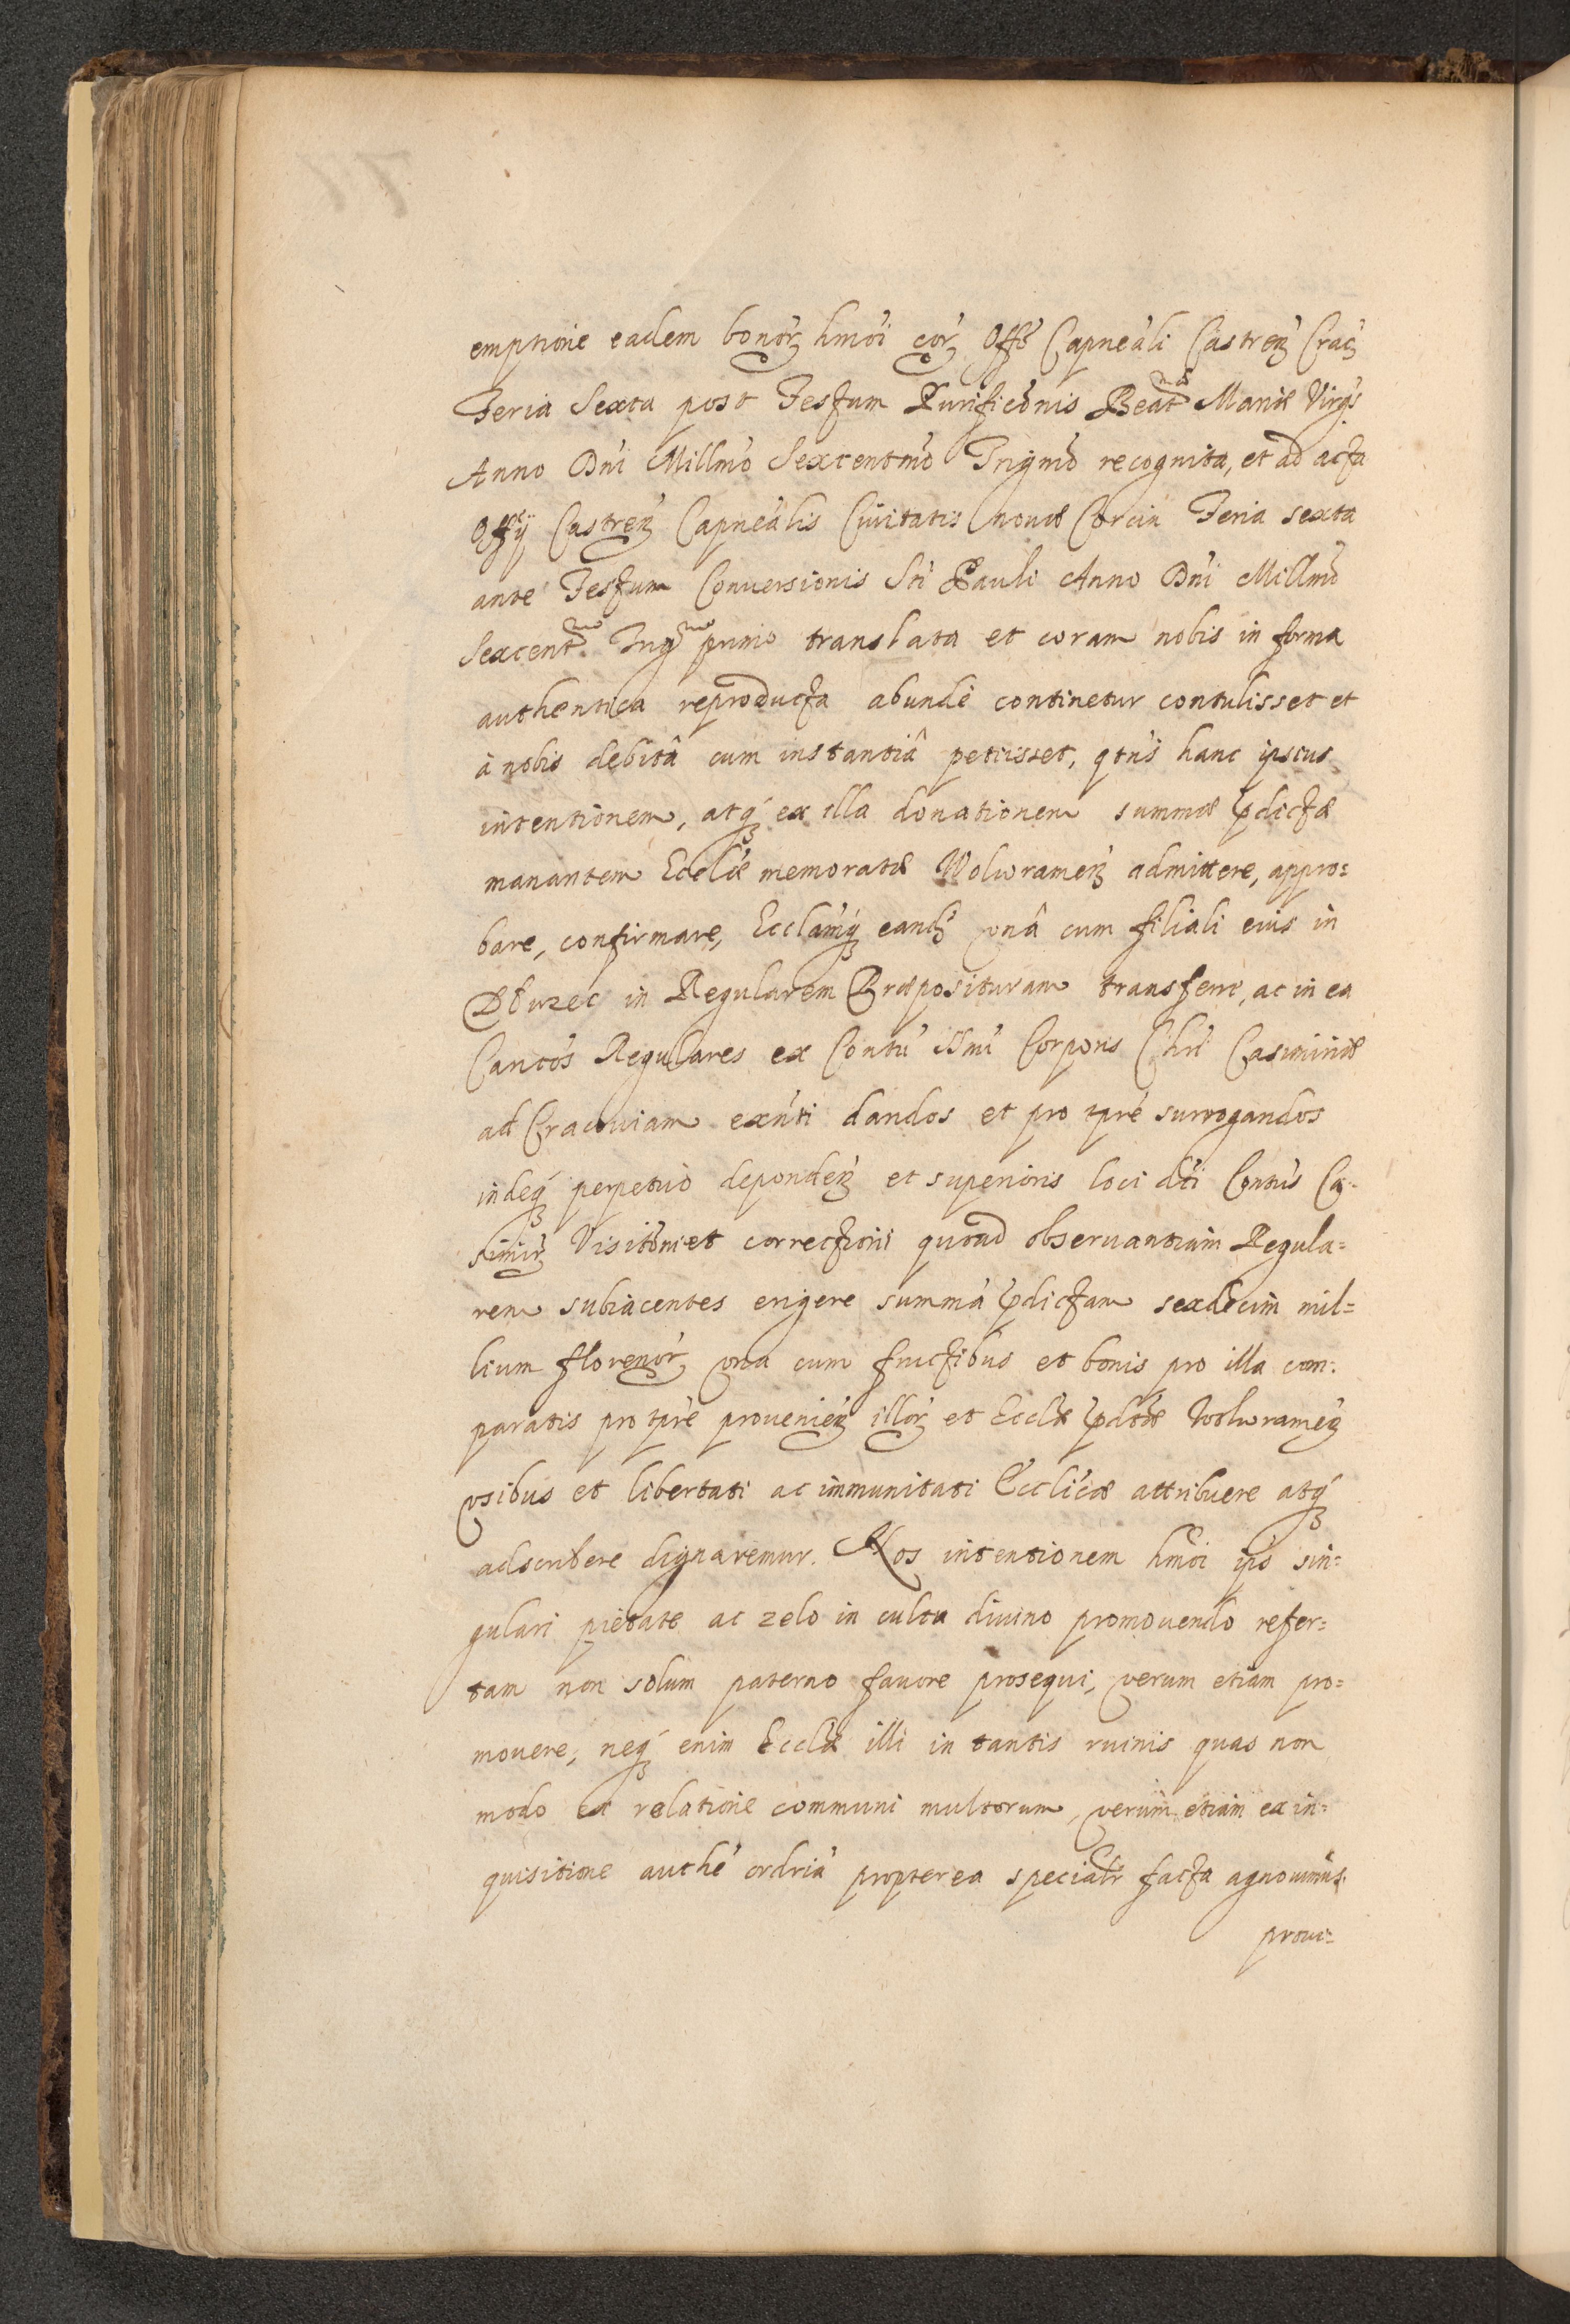 emptione eadem bonor̃ hmõi cor̃ Offõ Capneãli Castreñ Crac̃
Feria Sexta post Festum Purificõnis Beatmæ Mariæ Virgs
Anno Dñi Millmõ Sexcentmõ Trigmõ recognita, et ad acta
Offÿ Castreñ Capneãlis Civitatis novæ Corcin Feria sexta
ante Festum Conversionis Sti Pauli Anno Dñi Millmõ
Sexcentmo Trigmo primo translata et coram nobis in forma
authentica reproducta abundè continetur contulisset et
à nobis debitâ cum instantiâ petiisset, qtñs hanc ipsius
intentionem, atq́ ex illa donationem summæ p̱dictæ
manantem Eccliæ memoratæ Wolwrameñ admittere, appro=
bare, confirmare, Ecclamq́ eand́ vnâ cum filiali eius in
in Regularem Præposituram transferre, ac in ea
Canc̃os Regulares ex Contũ SSmi Corporis Chri Casimiriæ
ad Cracoviam exñti dandos et pro tpré surrogandos
indeq́ perpetuò dependeñ et superioris loci dti Contũs Ca-
simir̃ Visitõni et correctioni quoad observantiam Regula=
rem subiacentes erigere summã p̱dictam sexdecim mil=
lium florenor̃ vna cum fructibus et bonis pro illa com:
paratis pro tpré provenieñ illor̃ et Ecclæ p̱dtæ Wolwrameñ
vsibus et libertati ac immunitati Eccliĉæ attribuere atq́
adscribere dignaremur. Nos intentionem hmõi ips̃ sin=
gulari pietate ac zelo in cultu divino promovendo refer=
tam non solum paterno favore prosequi, verum etiam pro=
movere, neq́ enim Ecclæ illi in tantis ruinis quas non
modo ex relatione communi multorum, verùm etiam ex in=
quisitione authẽ ordriã propterea specialr̃ facta agnovimus
provi=